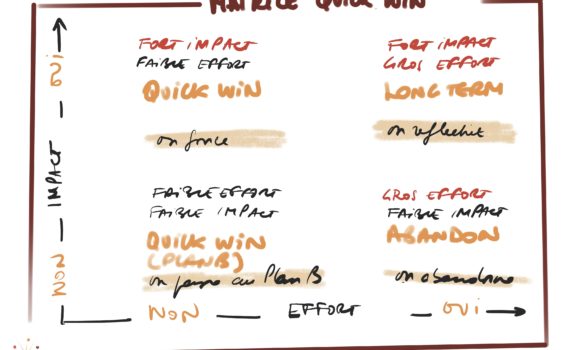 MATRICE QUICK WIN
OUI
IMPACT
NON
FORT IMPACT
FAIBLE EFFORT
QUICK WIN
on fonce
FORT IMPACT
GROS EFFORT
LONG TERM
on réfléchit
FAIBLE EFFORT
FAIBLE IMPACT
QUICK WIN
(PLAN B)
on pense au Plan B
GROS EFFORT
FAIBLE IMPACT
ABANDON
on abandonne
NON
EFFORT
OUI